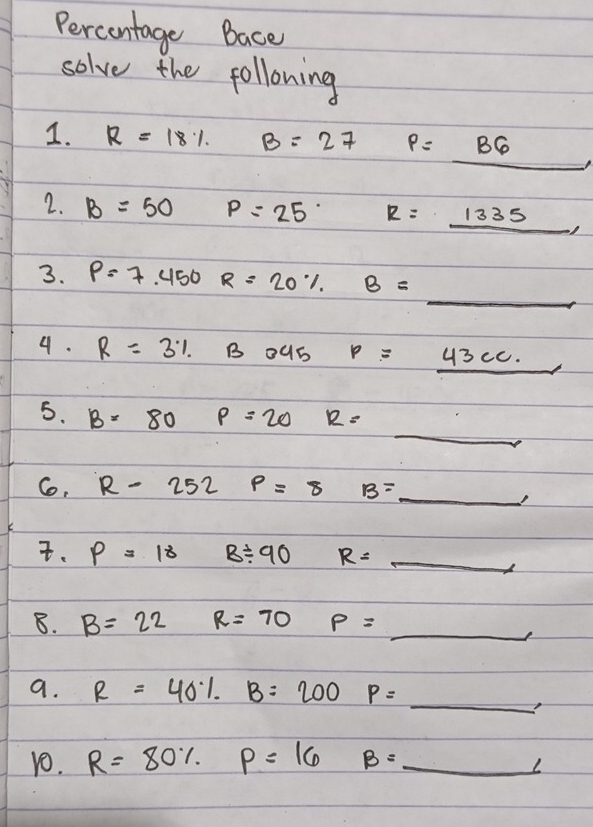 Percentage Base
solve the following
1. R = 18% B = 27 P = B6
2. B = 50 P = 25 R = 1335
3. P = 7.450 R = 20% B =
4. R = 3% B 045 P = 43cc.
5. B = 80 P = 20 R =
6. R - 252 P = 8 B =
7. P = 18 B = 90 R =
8. B = 22 R = 70 P =
9. R = 40% B = 200 P =
10. R = 80% P = 16 B =